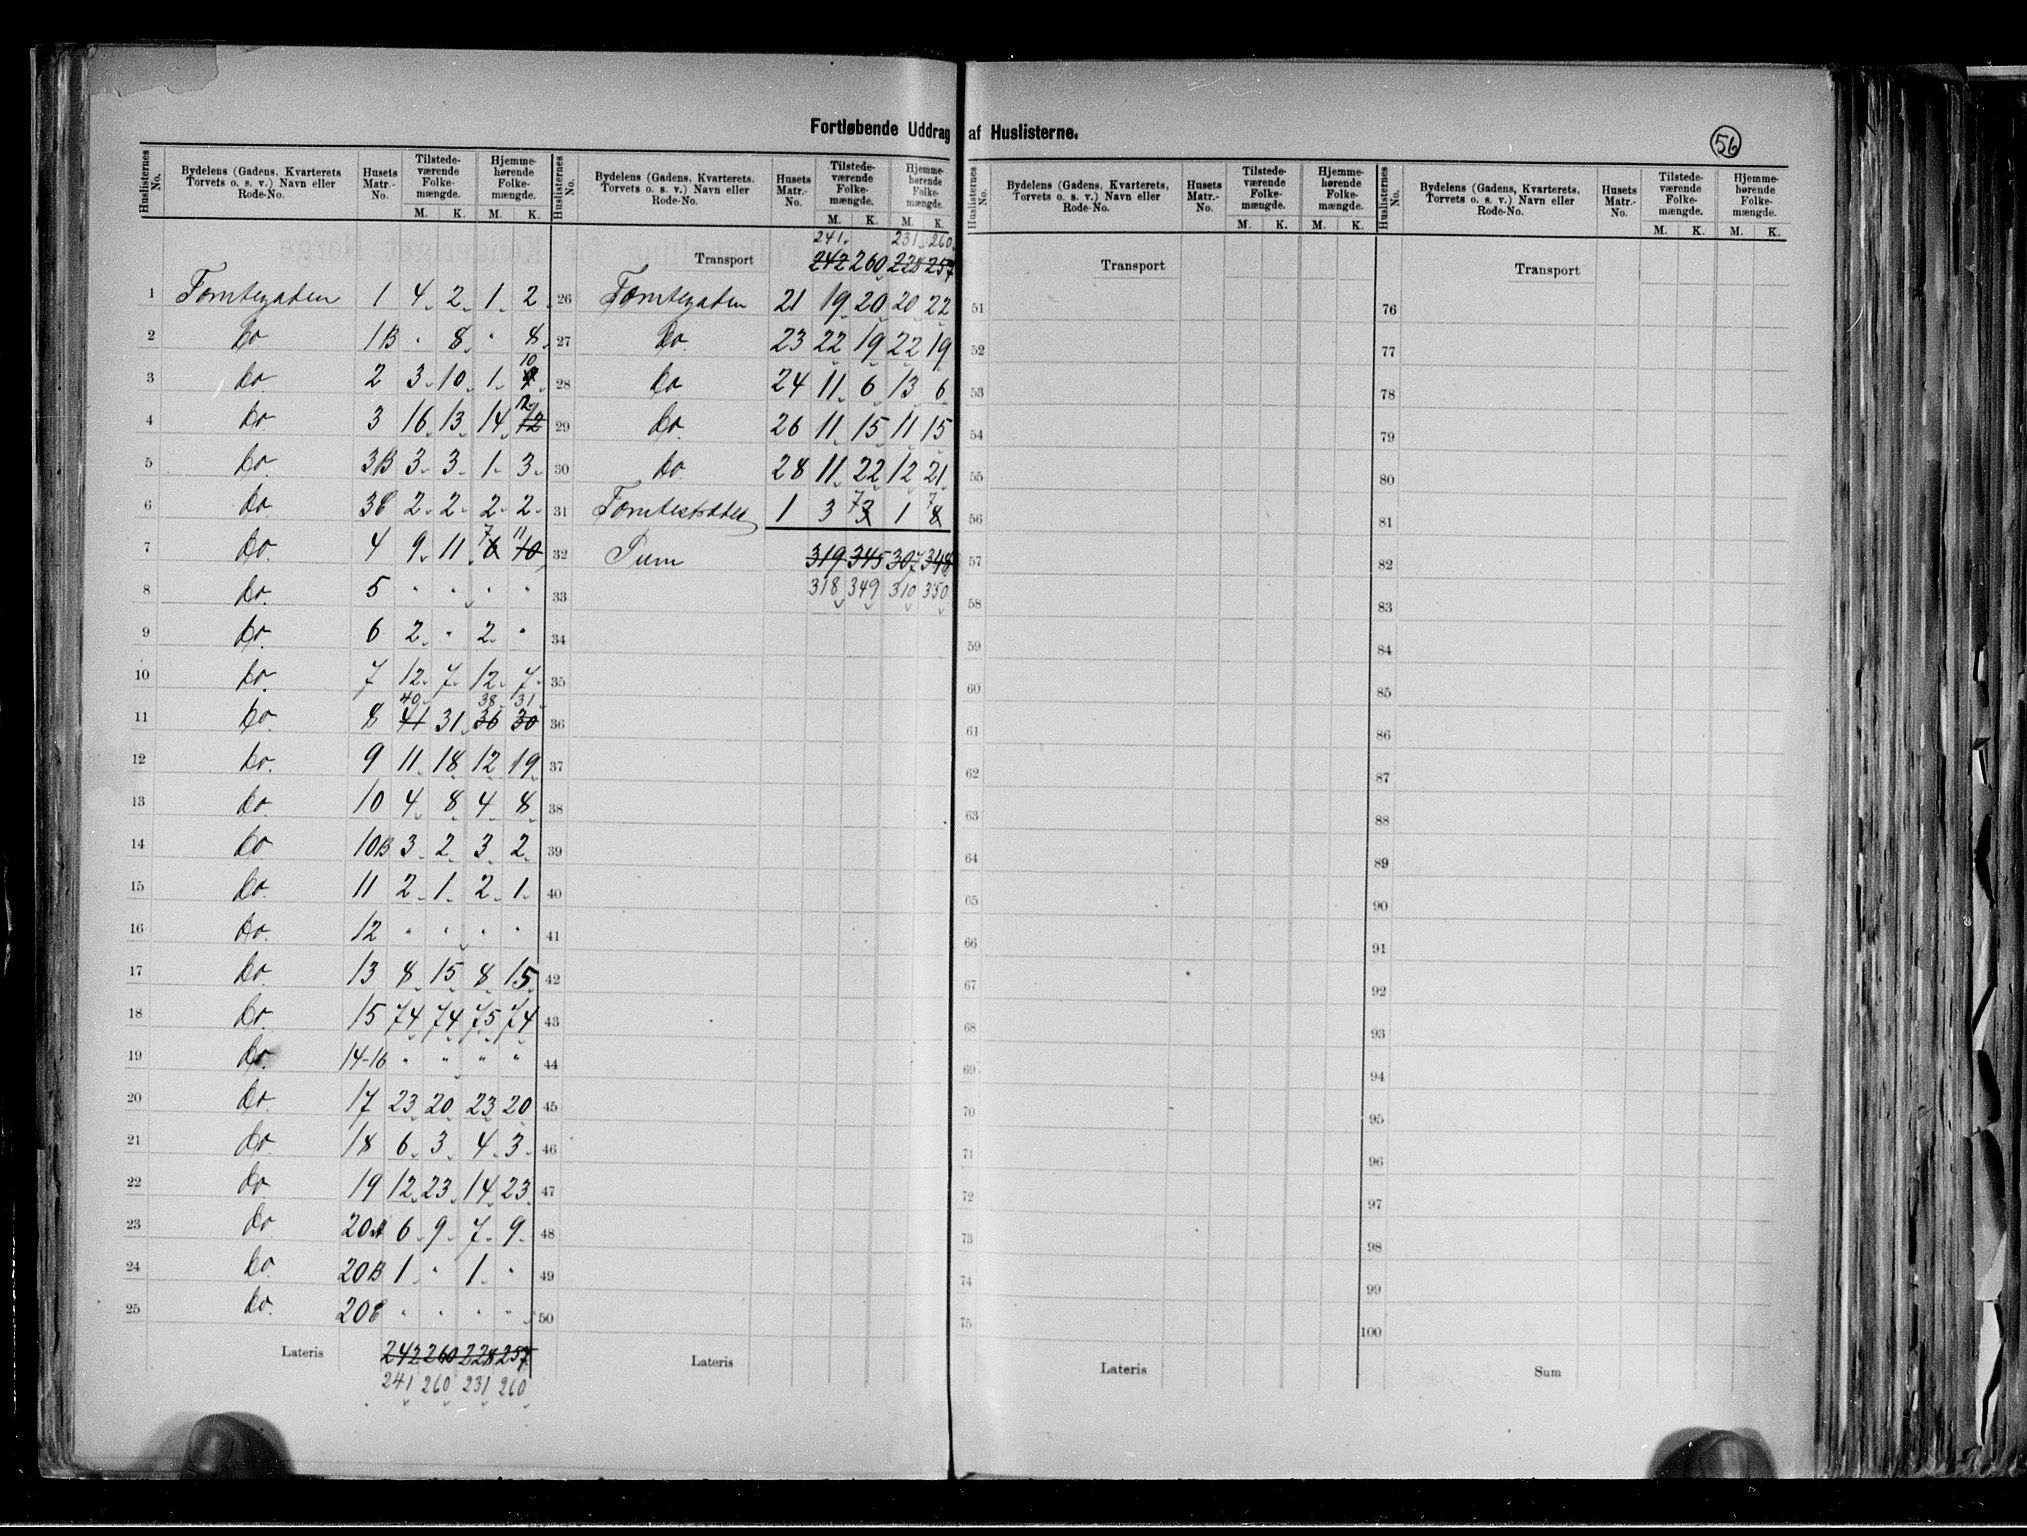 Fortløbende Uddrag af Huslisterne.
56
Huslisternes No. | Bydelens (Gadens, Kvarterets Torvets o. s. v.) Navn eller Rode-No. | Husets Matr.-No. | Tilstedeværende Folkemængde. M. K. | Hjemmehørende Folkemængde. M. K.
1 Tomtegaden 1 4 2 1 2
2 do 1B " 8 " 8
3 do 2 3 10 1 10
4 do 3 16 13 14 12
5 do. 3B 3 3 1 3
6 do. 3C 2 2 2 2
7 do. 4 9 11 6 7 10 11
8 do. 5 " " " "
9 do. 6 2 " 2 "
10 do. 7 12 7 12 7
11 do. 8 41 40 31 36 38 30 31
12 do. 9 11 18 12 19
13 do. 10 4 8 4 8
14 do 10B 3 2 3 2
15 do. 11 2 1 2 1
16 do. 12 " " " "
17 do. 13 8 15 8 15
18 do. 15 74 74 75 74
19 do. 14-16 " " " "
20 do. 17 23 20 23 20
21 do. 18 6 3 4 3
22 do. 19 12 23 14 23
23 do. 20A 6 9 7 9
24 do. 20B 1 " 1 "
25 do. 20C " " " "
Lateris 242 260 228 257
241 260 231 260
Huslisternes No. | Bydelens (Gadens, Kvarterets. Torvets o. s. v.) Navn eller Rode-No. | Husets Matr.-No. | Tilstedeværende Folkemængde. M. K. | Hjemmehørende Folkemængde. M. K.
241 231 260
Transport 242 260 228 257
26 Tomtegaden 21 19 20 20 22
27 do. 23 22 19 22 19
28 do 24 11 6 13 6
29 do. 26 11 15 11 15
30 do 28 11 22 12 21
31 Tomtestrædet 1 3 3 7 1 8 7
32 Sum 319 345 307 348
33 318 349 310 350
34
35
36
37
38
39
40
41
42
43
44
45
46
47
48
49
50
Lateris
Huslisternes No. | Bydelens (Gadens, Kvarterets, Torvets o. s. v.) Navn eller Rode-No. | Husets Matr.-No. | Tilstedeværende Folkemængde. M. K. | Hjemmehørende Folkemængde. M. K.
Transport
51
52
53
54
55
56
57
58
59
60
61
62
63
64
65
66
67
68
69
70
71
72
73
74
75
Lateris
Huslisternes No. | Bydelens (Gadens, Kvarterets, Torvets o. s. v.) Navn eller Rode-No. | Husets Matr.-No. | Tilstedeværende Folkemængde. M. K. | Hjemmehørende Folkemængde. M. K.
Transport
76
77
78
79
80
81
82
83
84
85
86
87
88
89
90
91
92
93
94
95
96
97
98
99
100
Sum